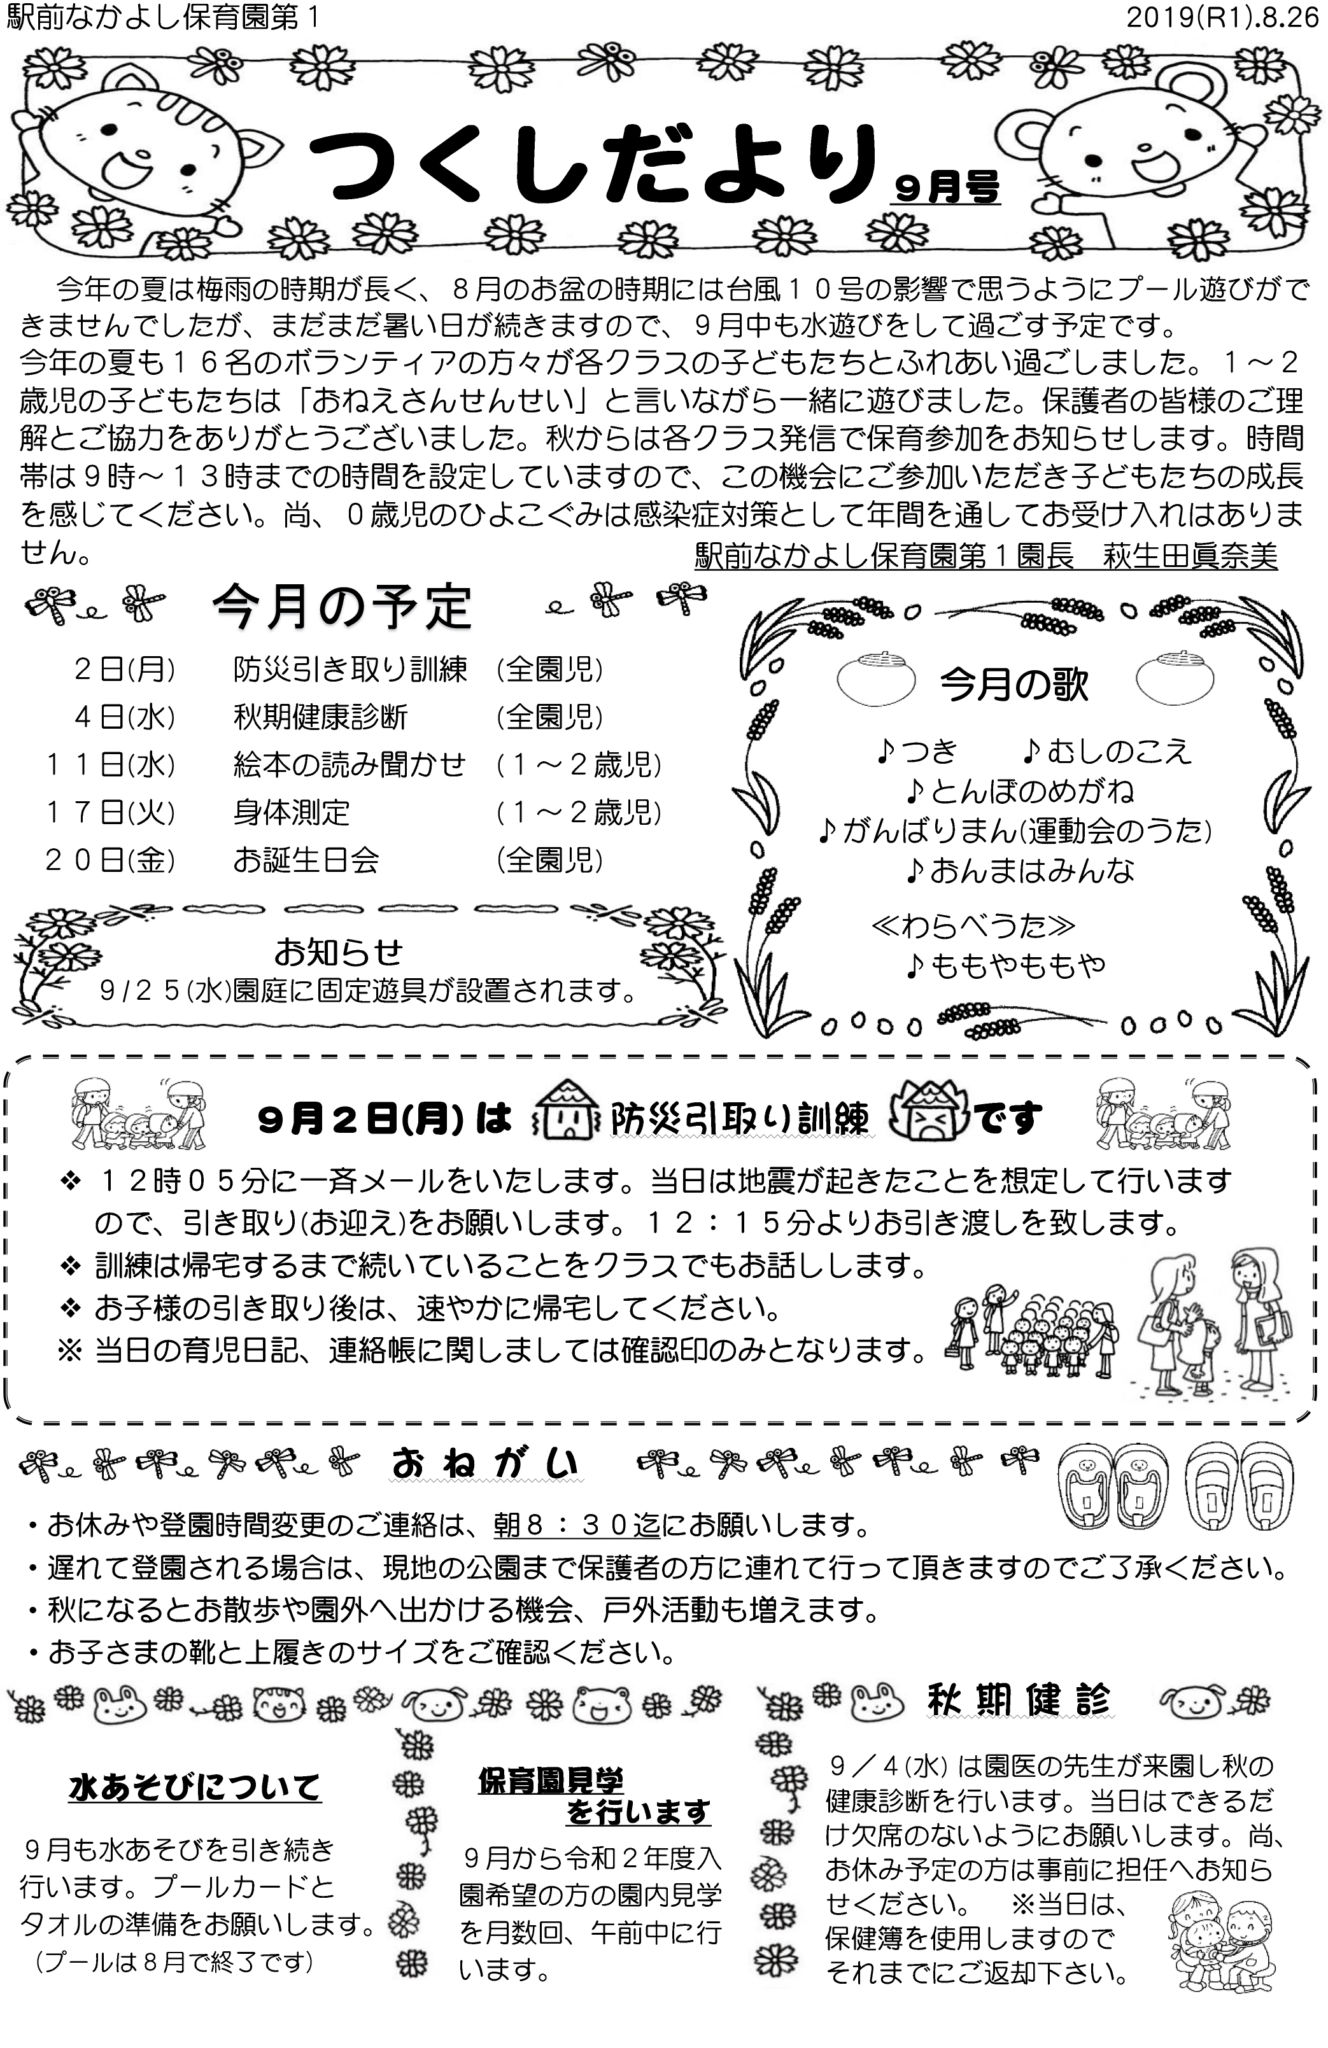 駅前なかよし保育園第１
2019(R1).8.26
つくしだより ９月号
今年の夏は梅雨の時期が長く、８月のお盆の時期には台風１０号の影響で思うようにプール遊びがで
きませんでしたが、まだまだ暑い日が続きますので、９月中も水遊びをして過ごす予定です。
今年の夏も１６名のボランティアの方々が各クラスの子どもたちとふれあい過ごしました。１～２
歳児の子どもたちは「おねえさんせんせい」と言いながら一緒に遊びました。保護者の皆様のご理
解とご協力をありがとうございました。秋からは各クラス発信で保育参加をお知らせします。時間
帯は９時～１３時までの時間を設定していますので、この機会にご参加いただき子どもたちの成長
を感じてください。尚、０歳児のひよこぐみは感染症対策として年間を通してお受け入れはありま
せん。
駅前なかよし保育園第１園長　萩生田眞奈美
今月の予定
２日(月)　防災引き取り訓練　(全園児)
４日(水)　秋期健康診断　(全園児)
１１日(水)　絵本の読み聞かせ　(１～２歳児)
１７日(火)　身体測定　(１～２歳児)
２０日(金)　お誕生日会　(全園児)
今月の歌
♪つき　♪むしのこえ
♪とんぼのめがね
♪がんばりまん(運動会のうた)
♪おんまはみんな
≪わらべうた≫
♪ももやももや
お知らせ
９/２５(水)園庭に固定遊具が設置されます。
９月２日(月)は 防災引取り訓練 です
❖ １２時０５分に一斉メールをいたします。当日は地震が起きたことを想定して行います
ので、引き取り(お迎え)をお願いします。１２：１５分よりお引き渡しを致します。
❖ 訓練は帰宅するまで続いていることをクラスでもお話しします。
❖ お子様の引き取り後は、速やかに帰宅してください。
※ 当日の育児日記、連絡帳に関しましては確認印のみとなります。
おねがい
・お休みや登園時間変更のご連絡は、朝８：３０迄にお願いします。
・遅れて登園される場合は、現地の公園まで保護者の方に連れて行って頂きますのでご了承ください。
・秋になるとお散歩や園外へ出かける機会、戸外活動も増えます。
・お子さまの靴と上履きのサイズをご確認ください。
水あそびについて
９月も水あそびを引き続き
行います。プールカードと
タオルの準備をお願いします。
（プールは８月で終了です）
保育園見学
を行います
９月から令和２年度入
園希望の方の園内見学
を月数回、午前中に行
います。
秋期健診
９／４(水) は園医の先生が来園し秋の
健康診断を行います。当日はできるだ
け欠席のないようにお願いします。尚、
お休み予定の方は事前に担任へお知ら
せください。　※当日は、
保健簿を使用しますので
それまでにご返却下さい。